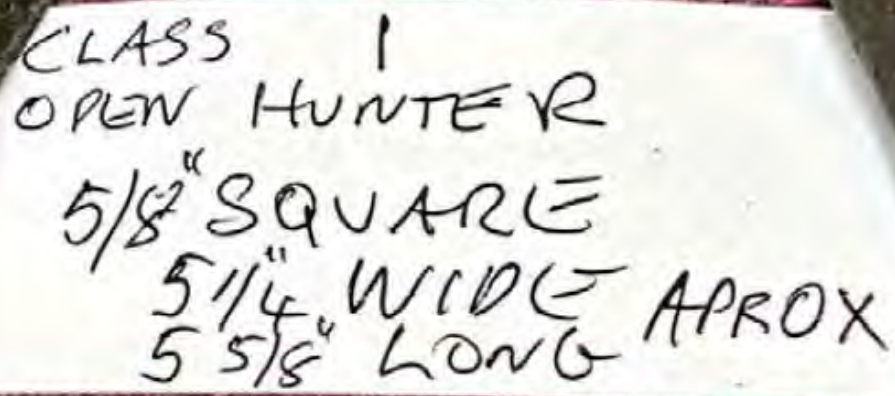 CLASS 1
OPEN HUNTER
5/8" SQUARE
5 1/4" WIDE APROX
5 5/8" LONG